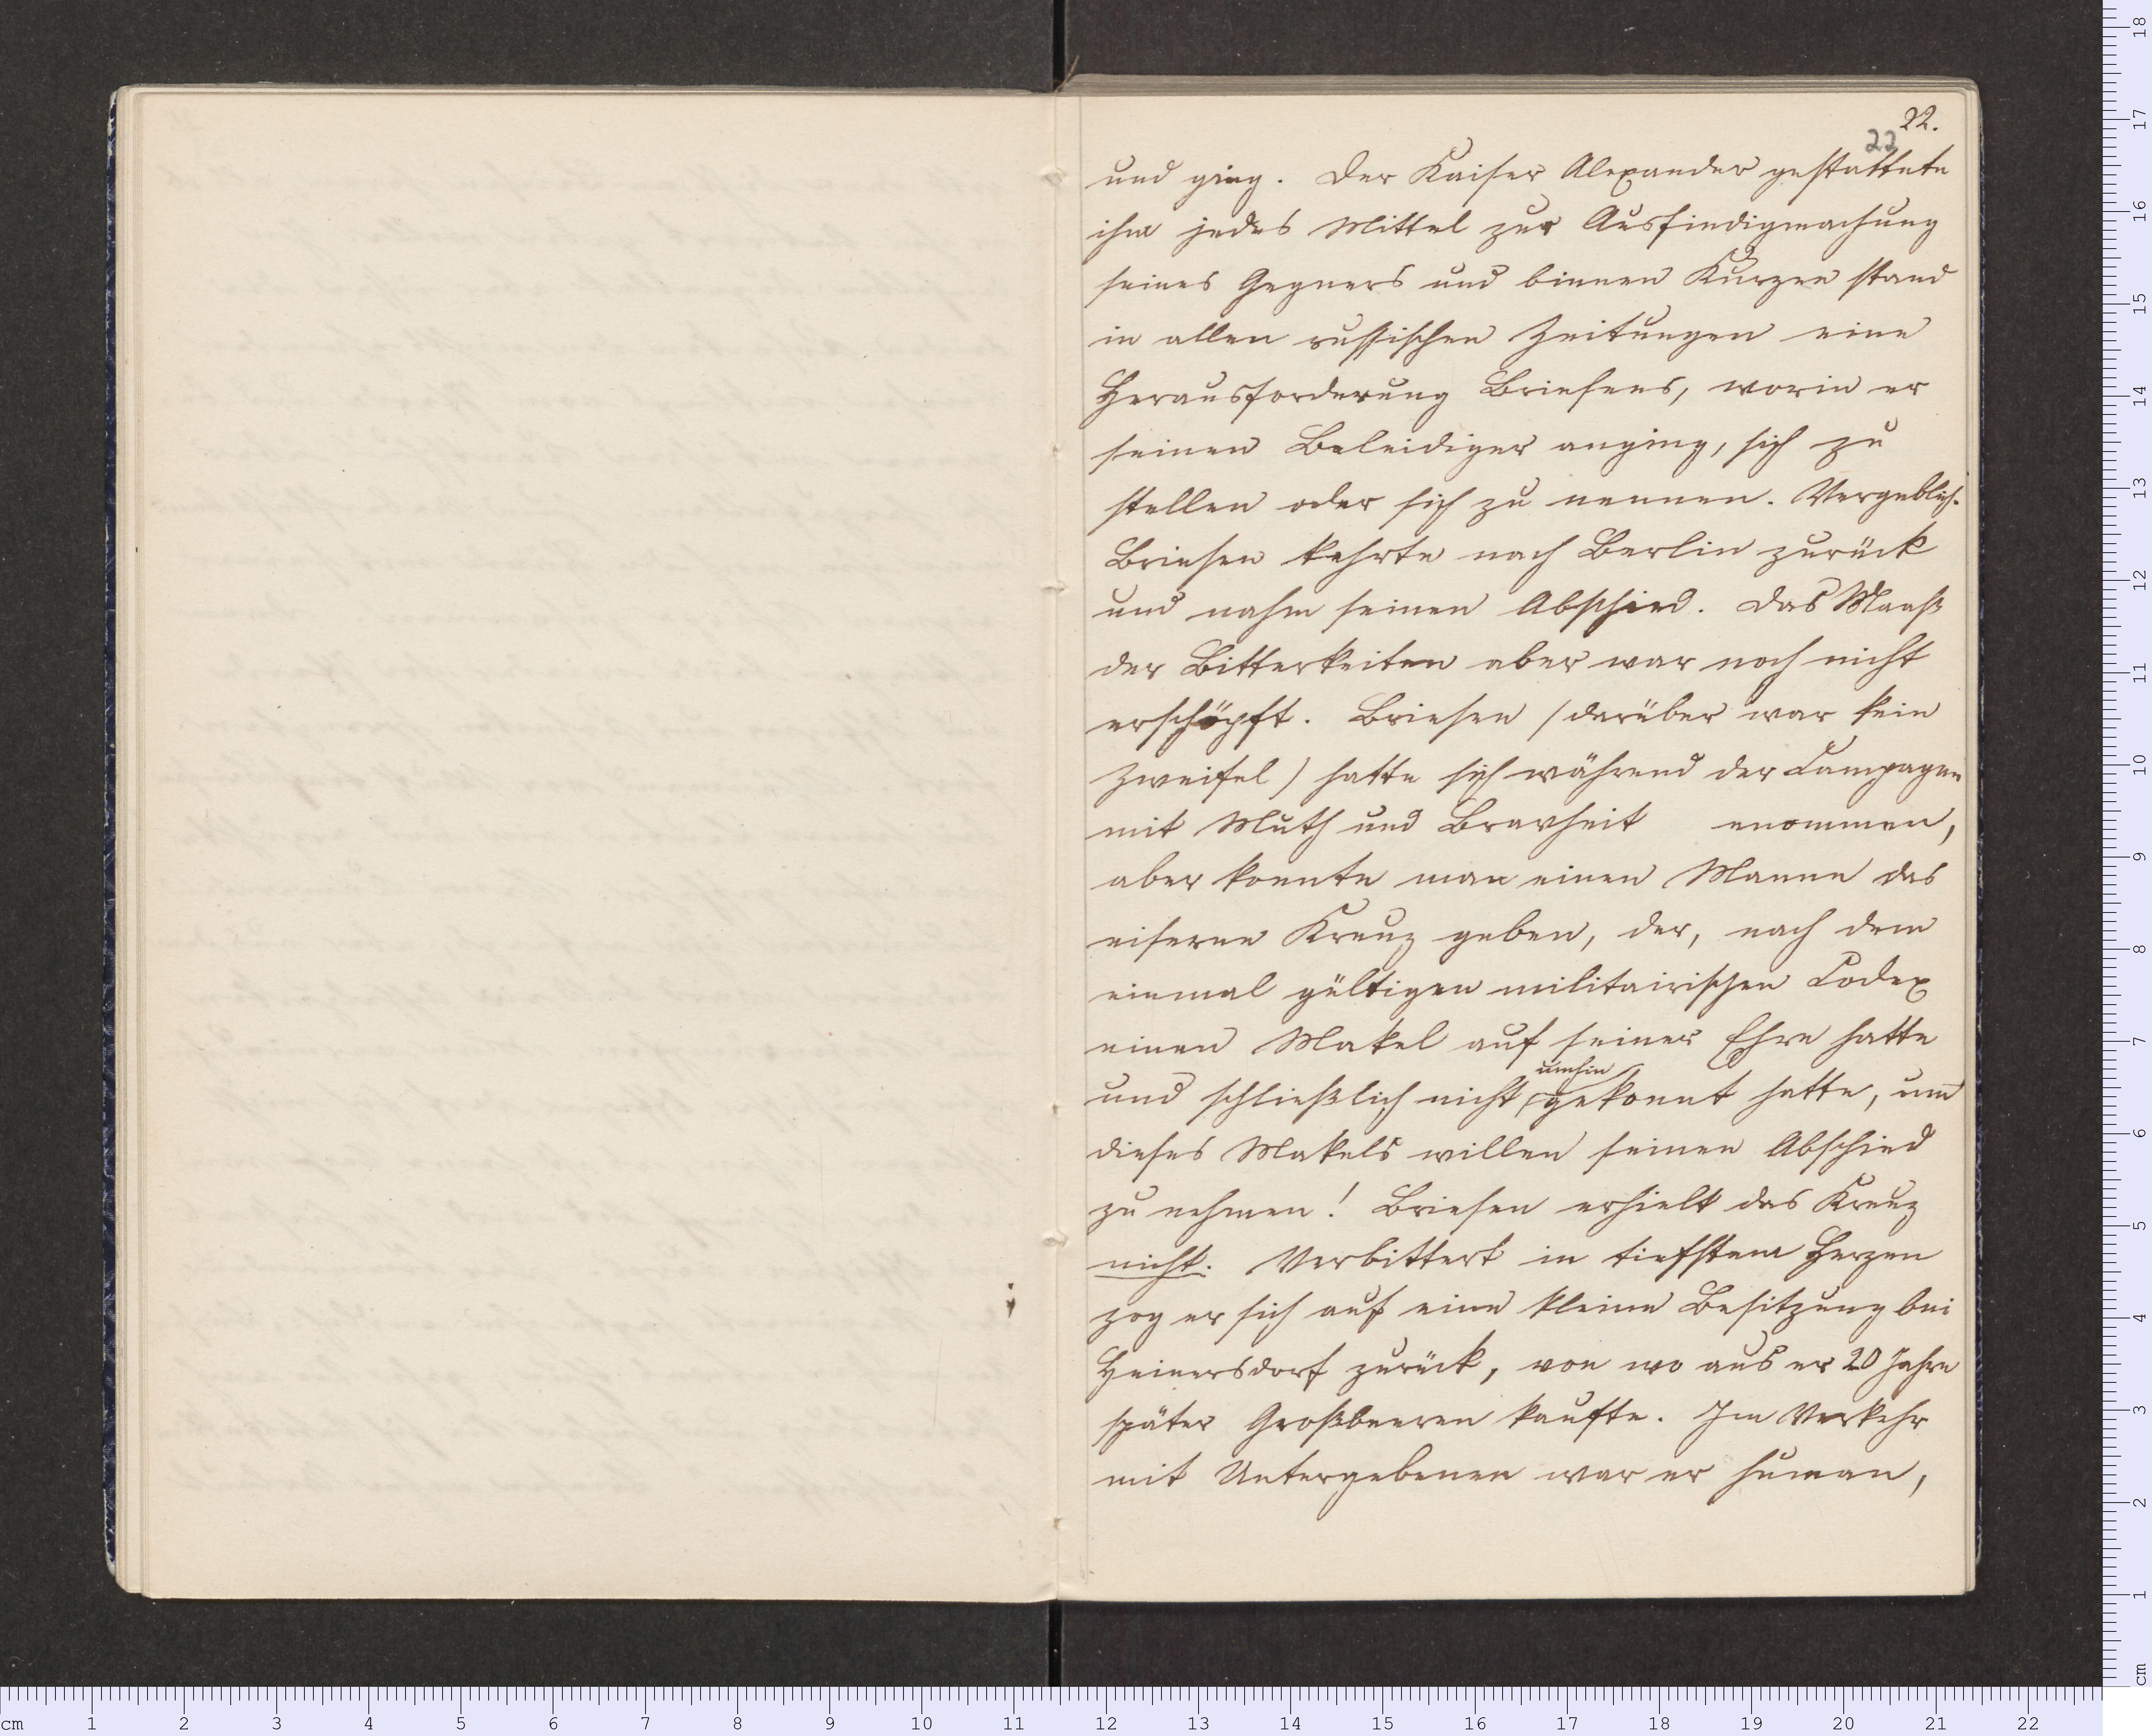 22.
22
und ging. Der Kaiser Alexander gestattete
ihm jedes Mittel zur Ausfindigmachung
seines Gegners und binnen Kurzen stand
in allen russischen Zeitungen eine
Herausforderung Briesens, worin er
seinen Beleidiger anging, sich zu
stellen oder sich zu nennen. Vergeblich.
Briesen kehrte nach Berlin zurück
und nahm seinen Abschied. Das Maaß
der Bitterkeiten aber war noch nicht
erschöpft. Briesen (darüber war kein
Zweifel) hatte sich während der Campagne
mit Muth und Bravheit enommen,
aber konnte man einen Manne das
eiserne Kreuz geben, der, nach dem
einmal gültigen militairischen Codex
einen Makel auf seiner Ehre hatte
umhin
und schließlich nicht gekonnt hatte, um
dieses Makels willen seinen Abschied
zu nehmen! Briesen erhielt das Kreuz
nicht. Verbittert in tiefstem Herzen
zog er sich auf eine kleine Besitzung bei
Heinersdorf zurück, von wo aus er 20 Jahre
später Großbeeren kaufte. Im Verkehr
mit Untergebenen war er human,
cm 1 2 3 4 5 6 7 8 9 10 11 12 13 14 15 16 17 18 19 20 21 22
cm 1 2 3 4 5 6 7 8 9 10 11 12 13 14 15 16 17 18